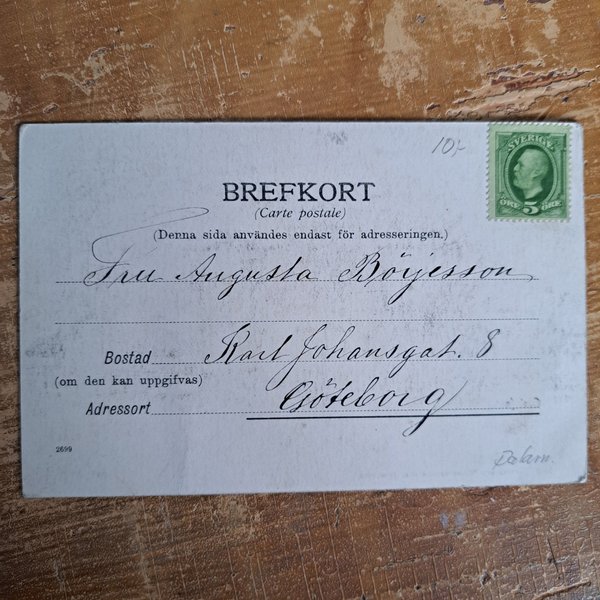 10,-
SVERIGE
ÖRE 5 ÖRE
BREFKORT
(Carte postale)
(Denna sida användes endast för adresseringen.)
Fru Augusta Börjesson
Bostad Karl Johansgat. 8
(om den kan uppgifvas)
Adressort Göteborg
2699